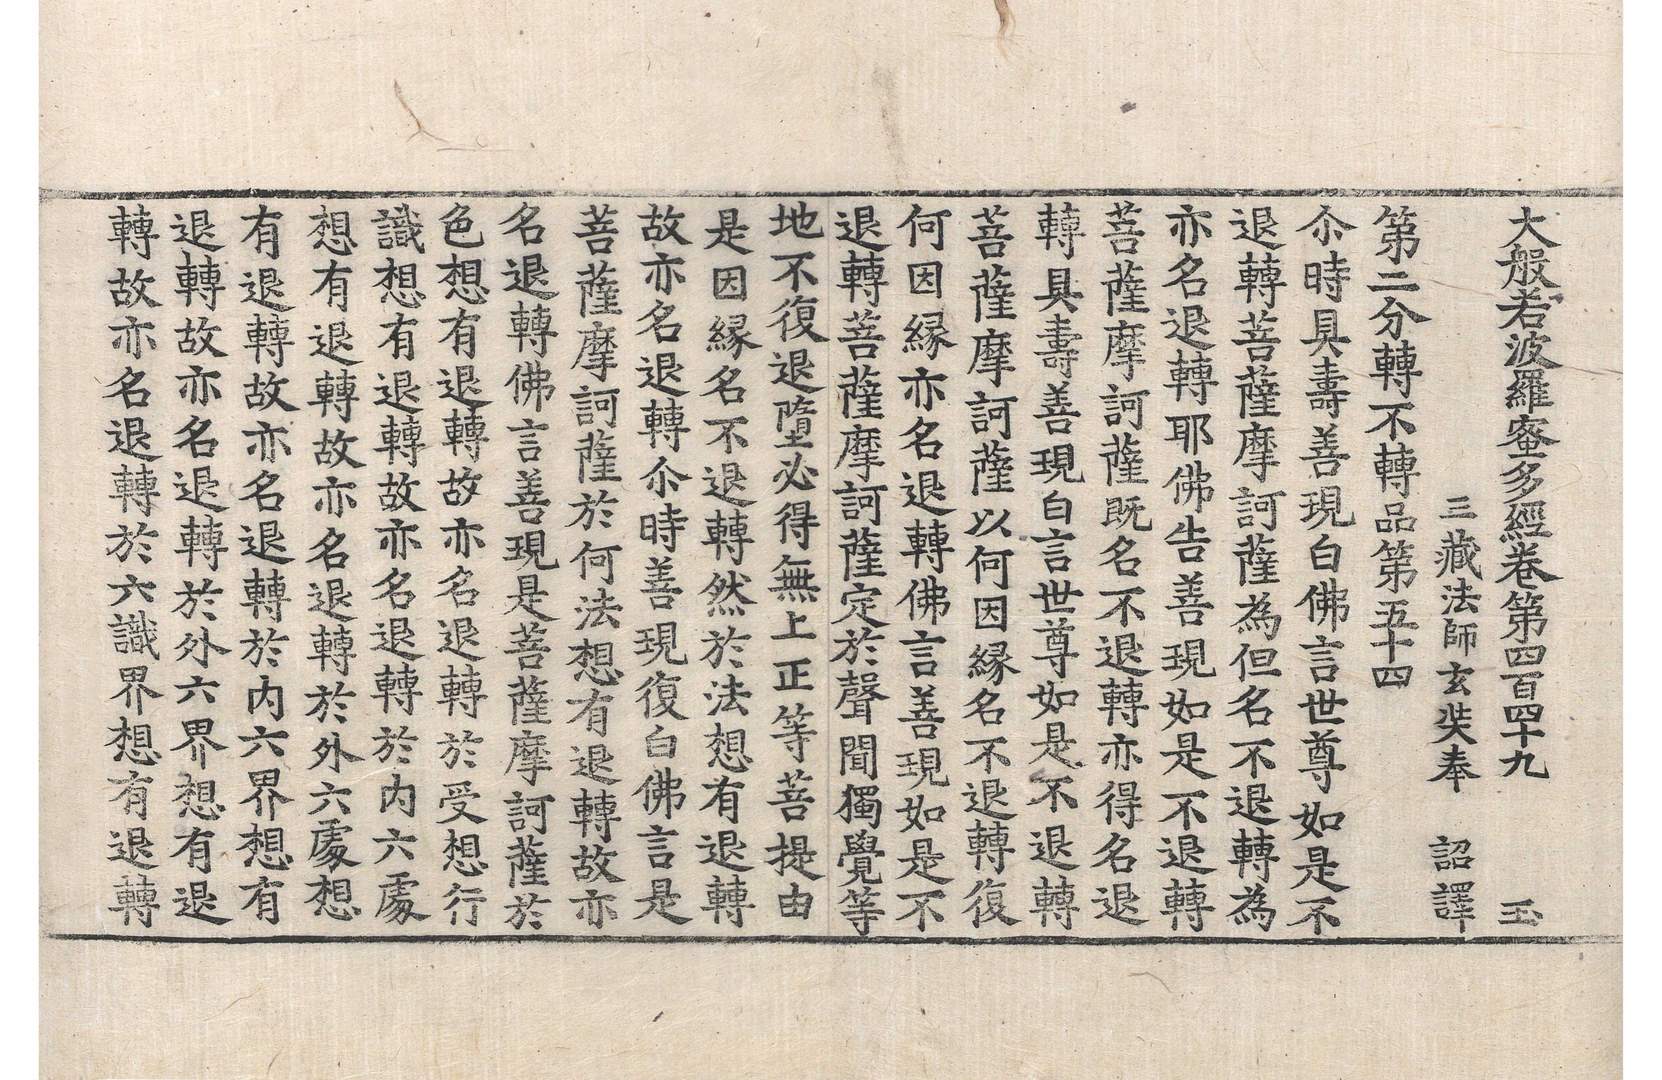 大般若波羅蜜多經卷第四百四十九　玉
三藏法師玄奘奉　詔譯
第二分轉不轉品第五十四
尒時具壽善現白佛言世尊如是不
退轉菩薩摩訶薩為但名不退轉為
亦名退轉耶佛告善現如是不退轉
菩薩摩訶薩既名不退轉亦得名退
轉具壽善現白言世尊如是不退轉
菩薩摩訶薩以何因緣名不退轉復
何因緣亦名退轉佛言善現如是不
退轉菩薩摩訶薩定於聲聞獨覺等
地不復退墮必得無上正等菩提由
是因緣名不退轉然於法想有退轉
故亦名退轉尒時善現復白佛言是
菩薩摩訶薩於何法想有退轉故亦
名退轉佛言善現是菩薩摩訶薩於
色想有退轉故亦名退轉於受想行
識想有退轉故亦名退轉於內六處
想有退轉故亦名退轉於外六處想
有退轉故亦名退轉於內六界想有
退轉故亦名退轉於外六界想有退
轉故亦名退轉於六識界想有退轉